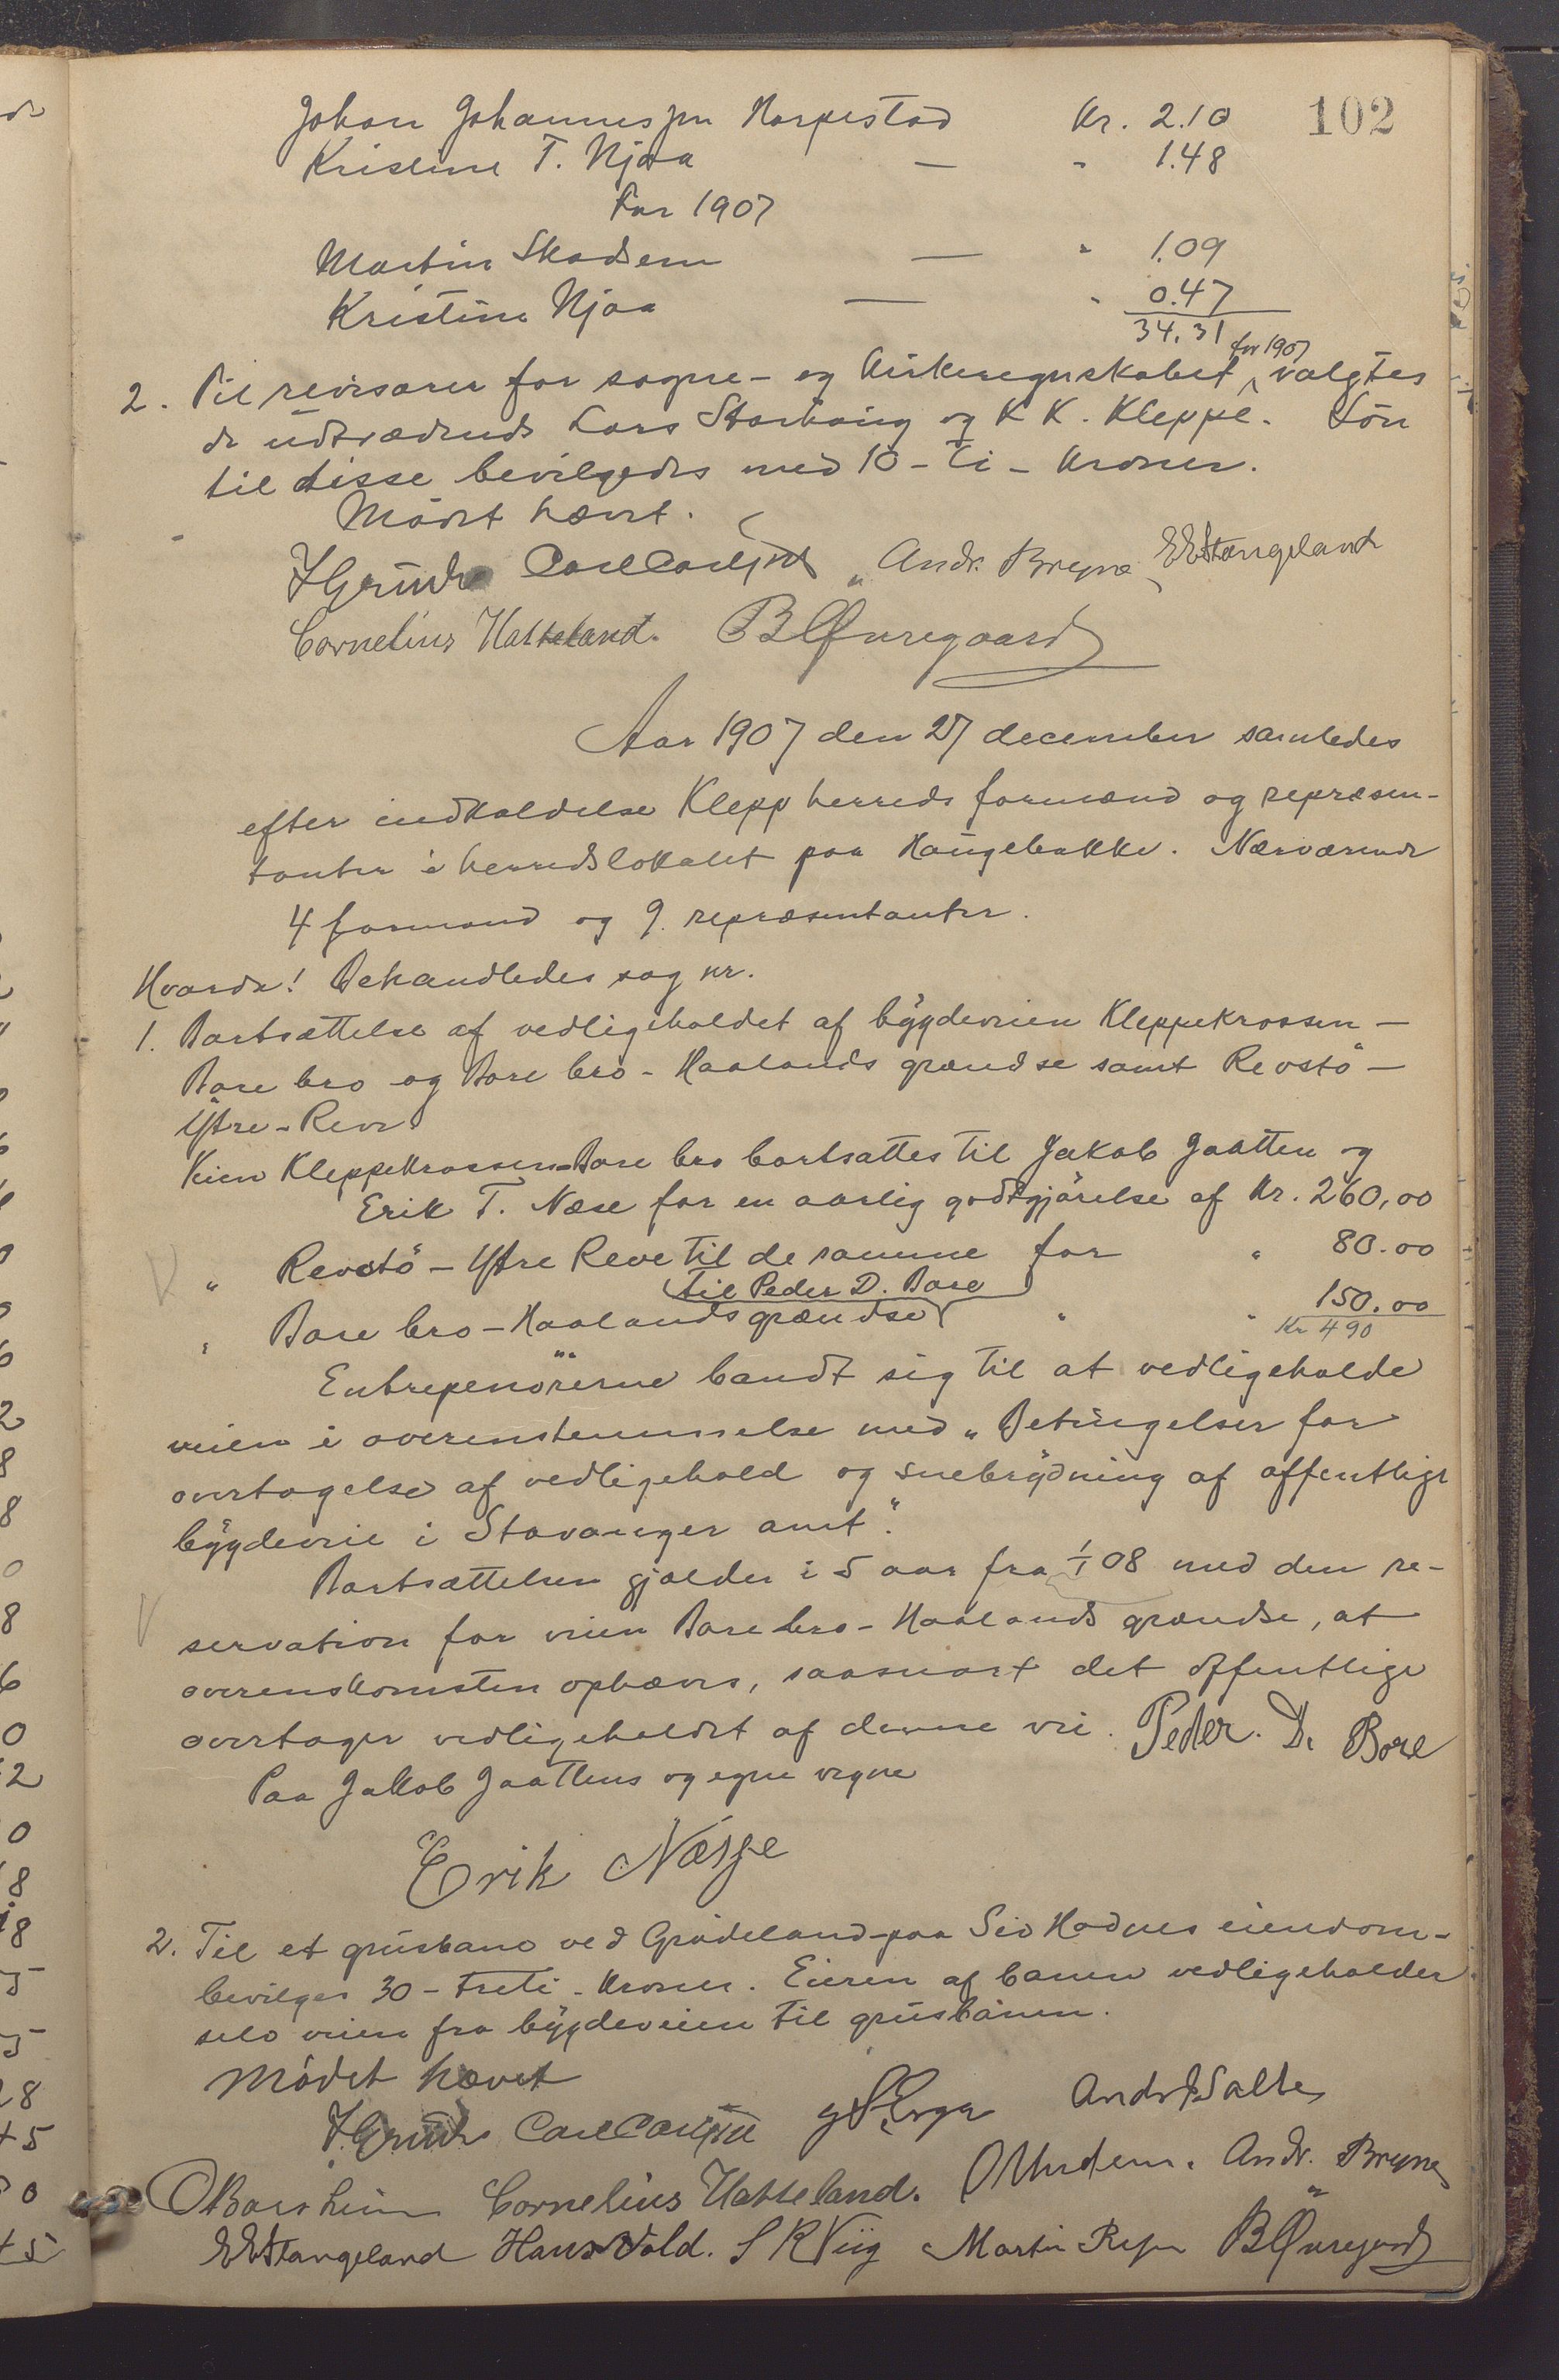 102
Johan Johannessen Harpestad Kr. 2.10
Kristine T. Njaa — " 1.48
For 1907
Martin Skadsem — " 1.09
Kristine Njaa — " 0.47
34.31
2. Til revisorer for sogne- og kirkeregnskabet for 1907 valgtes
de udtrædende Lars Storhaug og K K. Kleppe. Løn
til disse bevilgedes med 10 - ti - kroner.
Mødet hævet.
Carl Carlsen Andr. Bryne EEStangeland
Cornelius Hatteland. B Øuregaard
Aar 1907 den 27 december samledes
efter indkaldelse Klepp herreds formænd og repræsen-
tanter i herredslokalet paa Haugebakke. Nærværende
4 formænd og 9 repræsentanter.
Hvorda! Behandledes sag nr.
1. Bortsættelse af vedligeholdet af bygdeveien Kleppekrossen -
Bore bro og Bore bro - Haalands grændse samt Revstø -
Ytre - Reve
Veien Kleppekrossen - Bore bro bortsattes til Jakob Jaatten og
Erik T. Næse for en aarlig godtgjørelse af Kr. 260,00
" Revstø - Ytre Reve til de samme for " 80.00
til Peder D. Bore
" Bore bro - Haalands grændse " " 150.00
Kr 490
Entrepenørerne bandt sig til at vedligeholde
veien i overenstemmelse med "Betingelser for
overtagelse af vedligehold og snebrydning af offentlige
bygdeveie i Stavanger amt".
Bortsættelsen gjælder i 5 aar fra 1/1 08 med den re-
servation for veien Bore bro - Haalands grændse, at
overenskomsten ophæves, saasnart det offentlige
overtager vedligeholdet af denne vei. Peder. D. Bore
Paa Jakob Jaattens og egne vegne
Erik Næsse
2. Til et grustag ved Grødeland paa Siv Hadnes eiendom -
bevilges 30 - treti - kroner. Eieren af banen vedligeholder
selv veien fra bygdeveien til grusbanen.
Mødet hævet
Carl Carlsen Erga Andr J Salte
O Barsheim Cornelius Hatteland. Andr. Bryne
EEStangeland Hans Vold. S R Viig Martin B Øuregaard